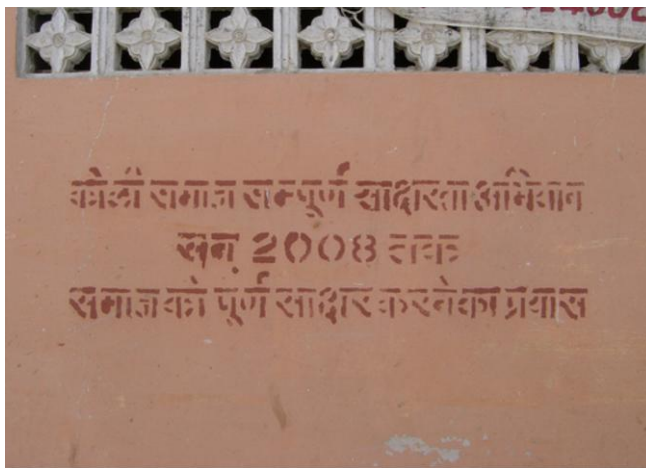 कोळी समाज सम्पुर्ण साक्षरता अभियान
सन् 2008 तक
समाज को पुर्ण साक्षर करने का प्रयास